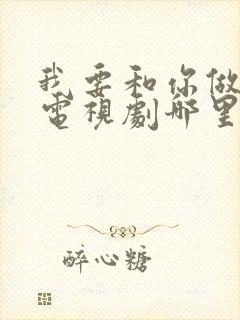 我要和你做
電視劇那里
醉心糖